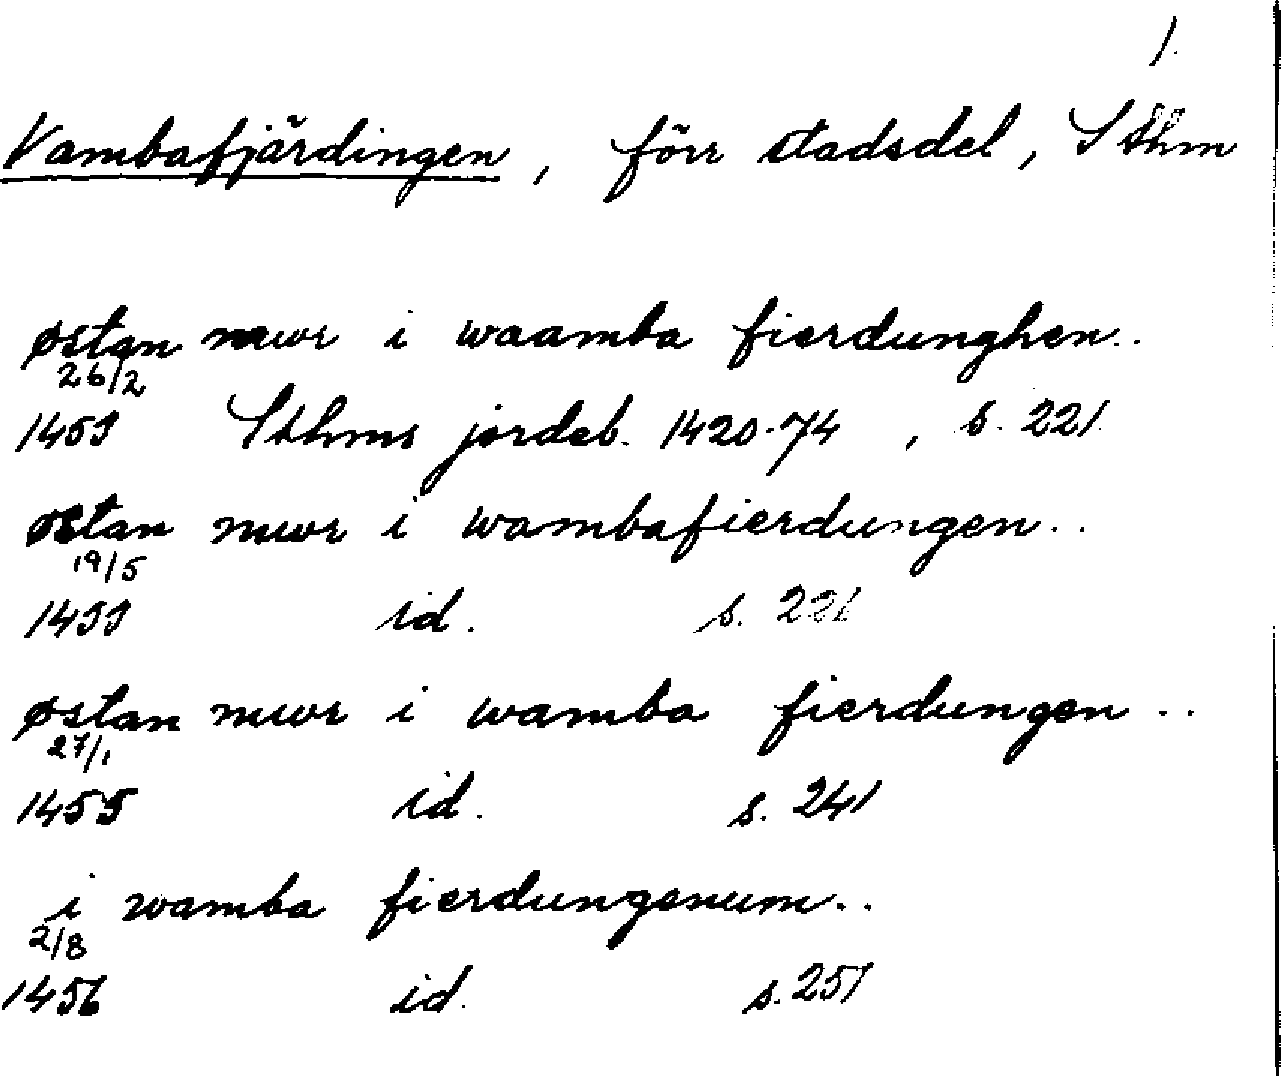 1.
Vambafjärdingen, förr stadsdel, Sthm
østan mwr i waamba fierdunghen..
26/2
1453 Sthms jordeb. 1420-74, s. 221
østan mwr i wambafierdungen..
19/5
1453 id. s. 226
østan mwr i wamba fierdungen..
27/1
1455 id. s. 241
i wamba fierdungenum..
2/8
1456 id. s. 257